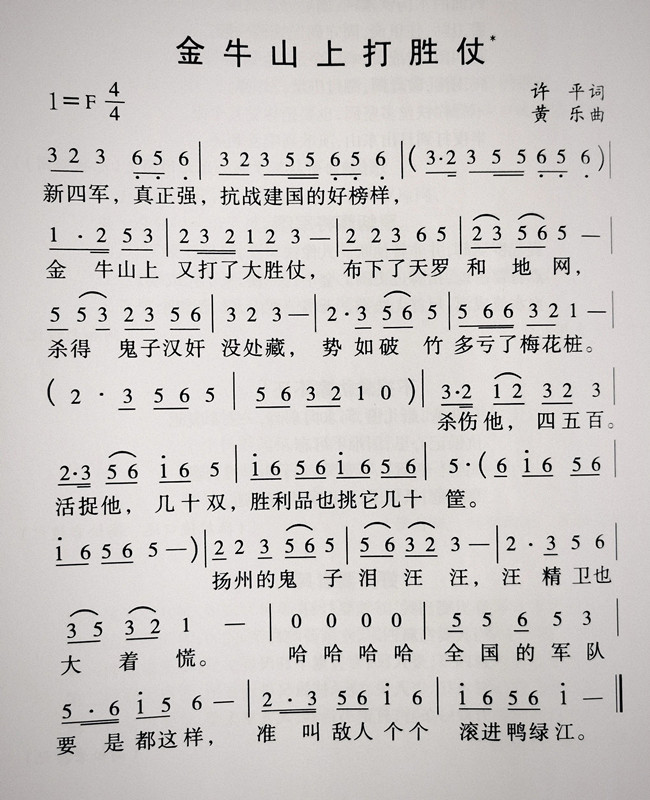 金牛山上打胜仗*
1=F 4/4
许 平词
黄 乐曲
3 2 3 6 5 6 | 3 2 3 5 5 6 5 6 | ( 3·2 3 5 5 6 5 6 ) |
新四军，真正强，抗战建国的好榜样，
1 · 2 5 3 | 2 3 2 1 2 3 — | 2 2 3 6 5 | 2 3 5 6 5 — |
金 牛山上 又打了大胜仗， 布下了天罗 和 地 网，
5 5 3 2 3 5 6 | 3 2 3 — | 2·3 5 6 5 | 5 6 6 3 2 1 — |
杀得 鬼子汉奸 没处藏， 势 如破 竹 多亏了梅花桩。
( 2 · 3 5 6 5 | 5 6 3 2 1 0 ) | 3·2 1 2 3 2 3 |
杀伤他， 四五百。
2·3 5 6 i 6 5 | i 6 5 6 i 6 5 6 | 5·( 6 i 6 5 6 |
活捉他， 几十双，胜利品也挑它几十 筐。
i 6 5 6 5 — ) | 2 2 3 5 6 5 | 5 6 3 2 3 — | 2 · 3 5 6 |
扬州的鬼 子 泪 汪 汪， 汪 精 卫也
3 5 3 2 1 — | 0 0 0 0 | 5 5 6 5 3 |
大 着 慌。 哈哈哈哈 全国的军队
5 · 6 i 5 6 — | 2·3 5 6 i 6 | i 6 5 6 i — ‖
要 是都这样， 准 叫敌人个个 滚进鸭绿江。